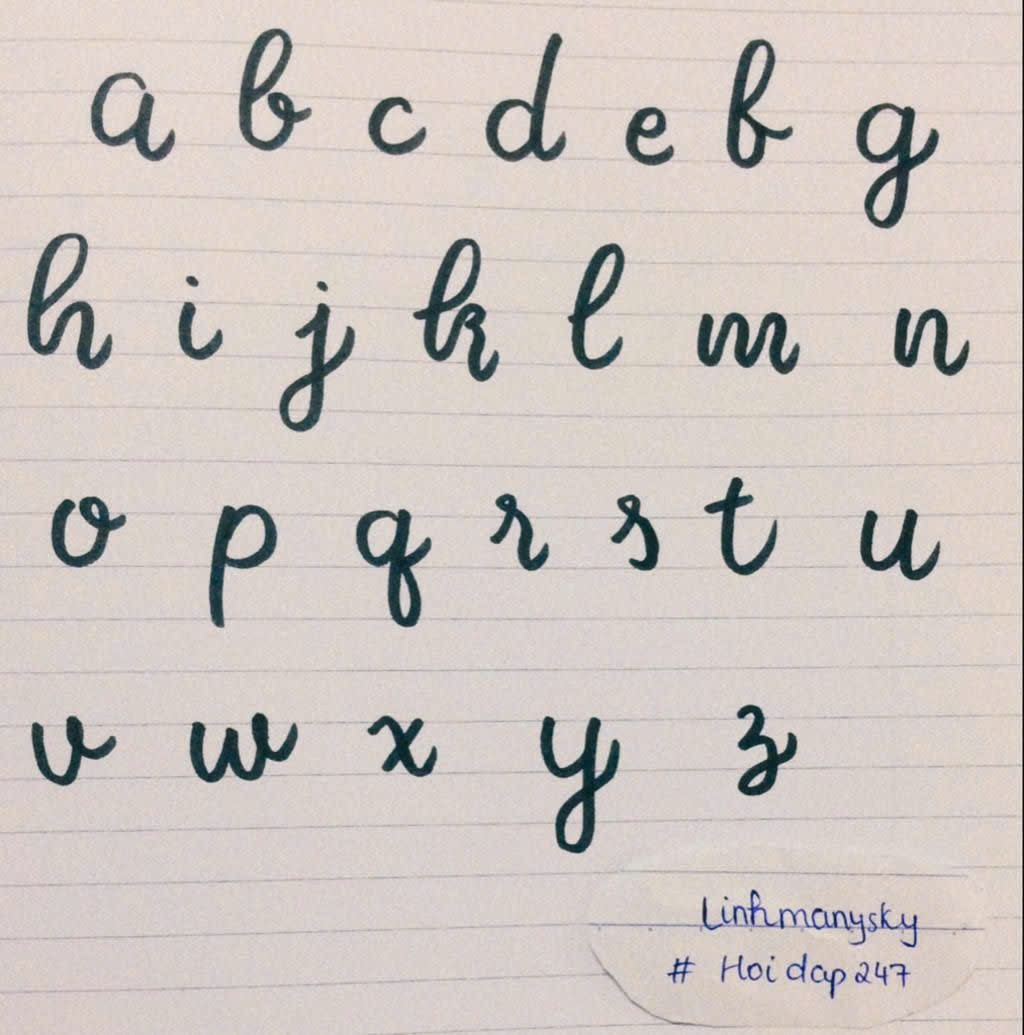 a b c d e f g
h i j k l m n
o p q r s t u
v w x y z
Linhmanysky
# Hoidap247